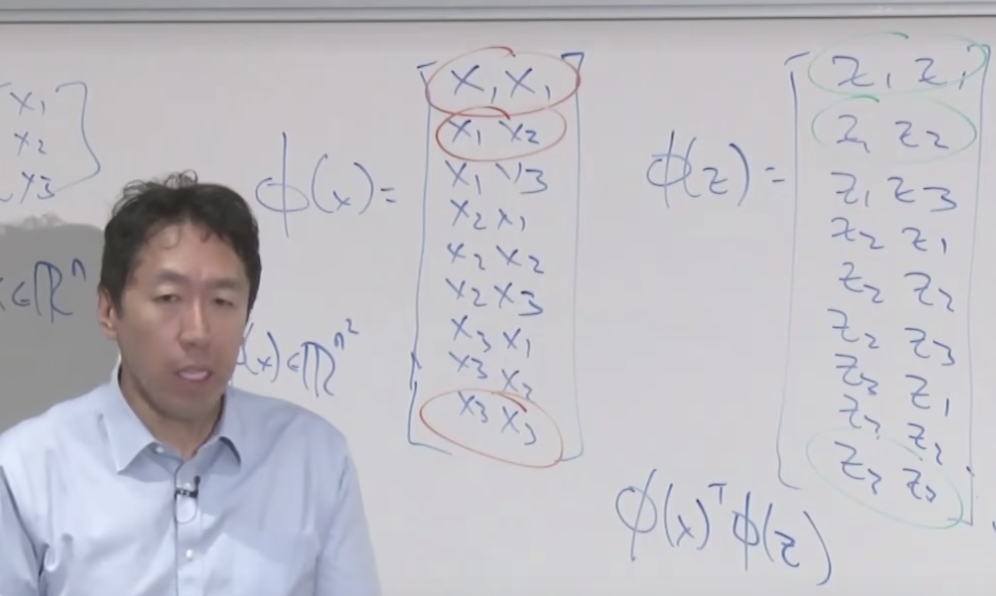 x₁
x₂
x₃
x∈ℝⁿ
ϕ(x)=
x₁ x₁
x₁ x₂
x₁ x₃
x₂ x₁
x₂ x₂
x₂ x₃
x₃ x₁
x₃ x₂
x₃ x₃
(x)∈ℝⁿ²
ϕ(z)=
z₁ z₁
z₁ z₂
z₁ z₃
z₂ z₁
z₂ z₂
z₂ z₃
z₃ z₁
z₃ z₂
z₃ z₃
ϕ(x)ᵀϕ(z)